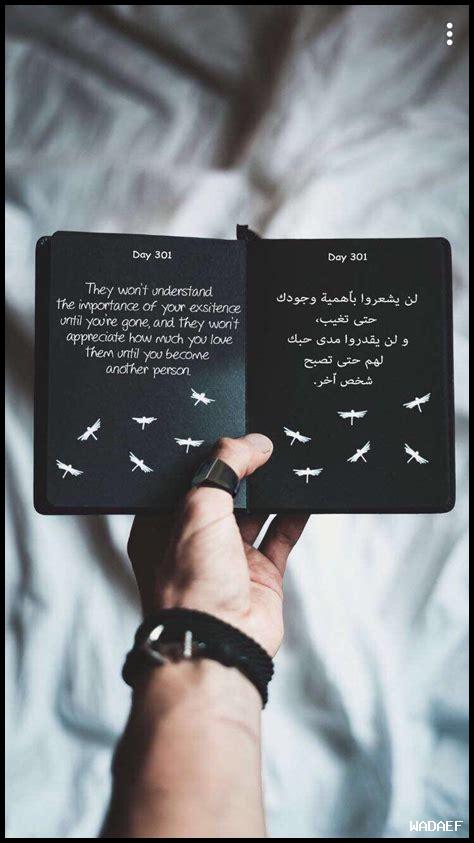 Day 301
They won't understand
the importance of your exsitence
until you're gone, and they won't
appreciate how much you love
them until you become
another person.
Day 301
لن يشعروا بأهمية وجودك
حتى تغيب،
و لن يقدروا مدى حبك
لهم حتى تصبح
شخص آخر.
WADAEF